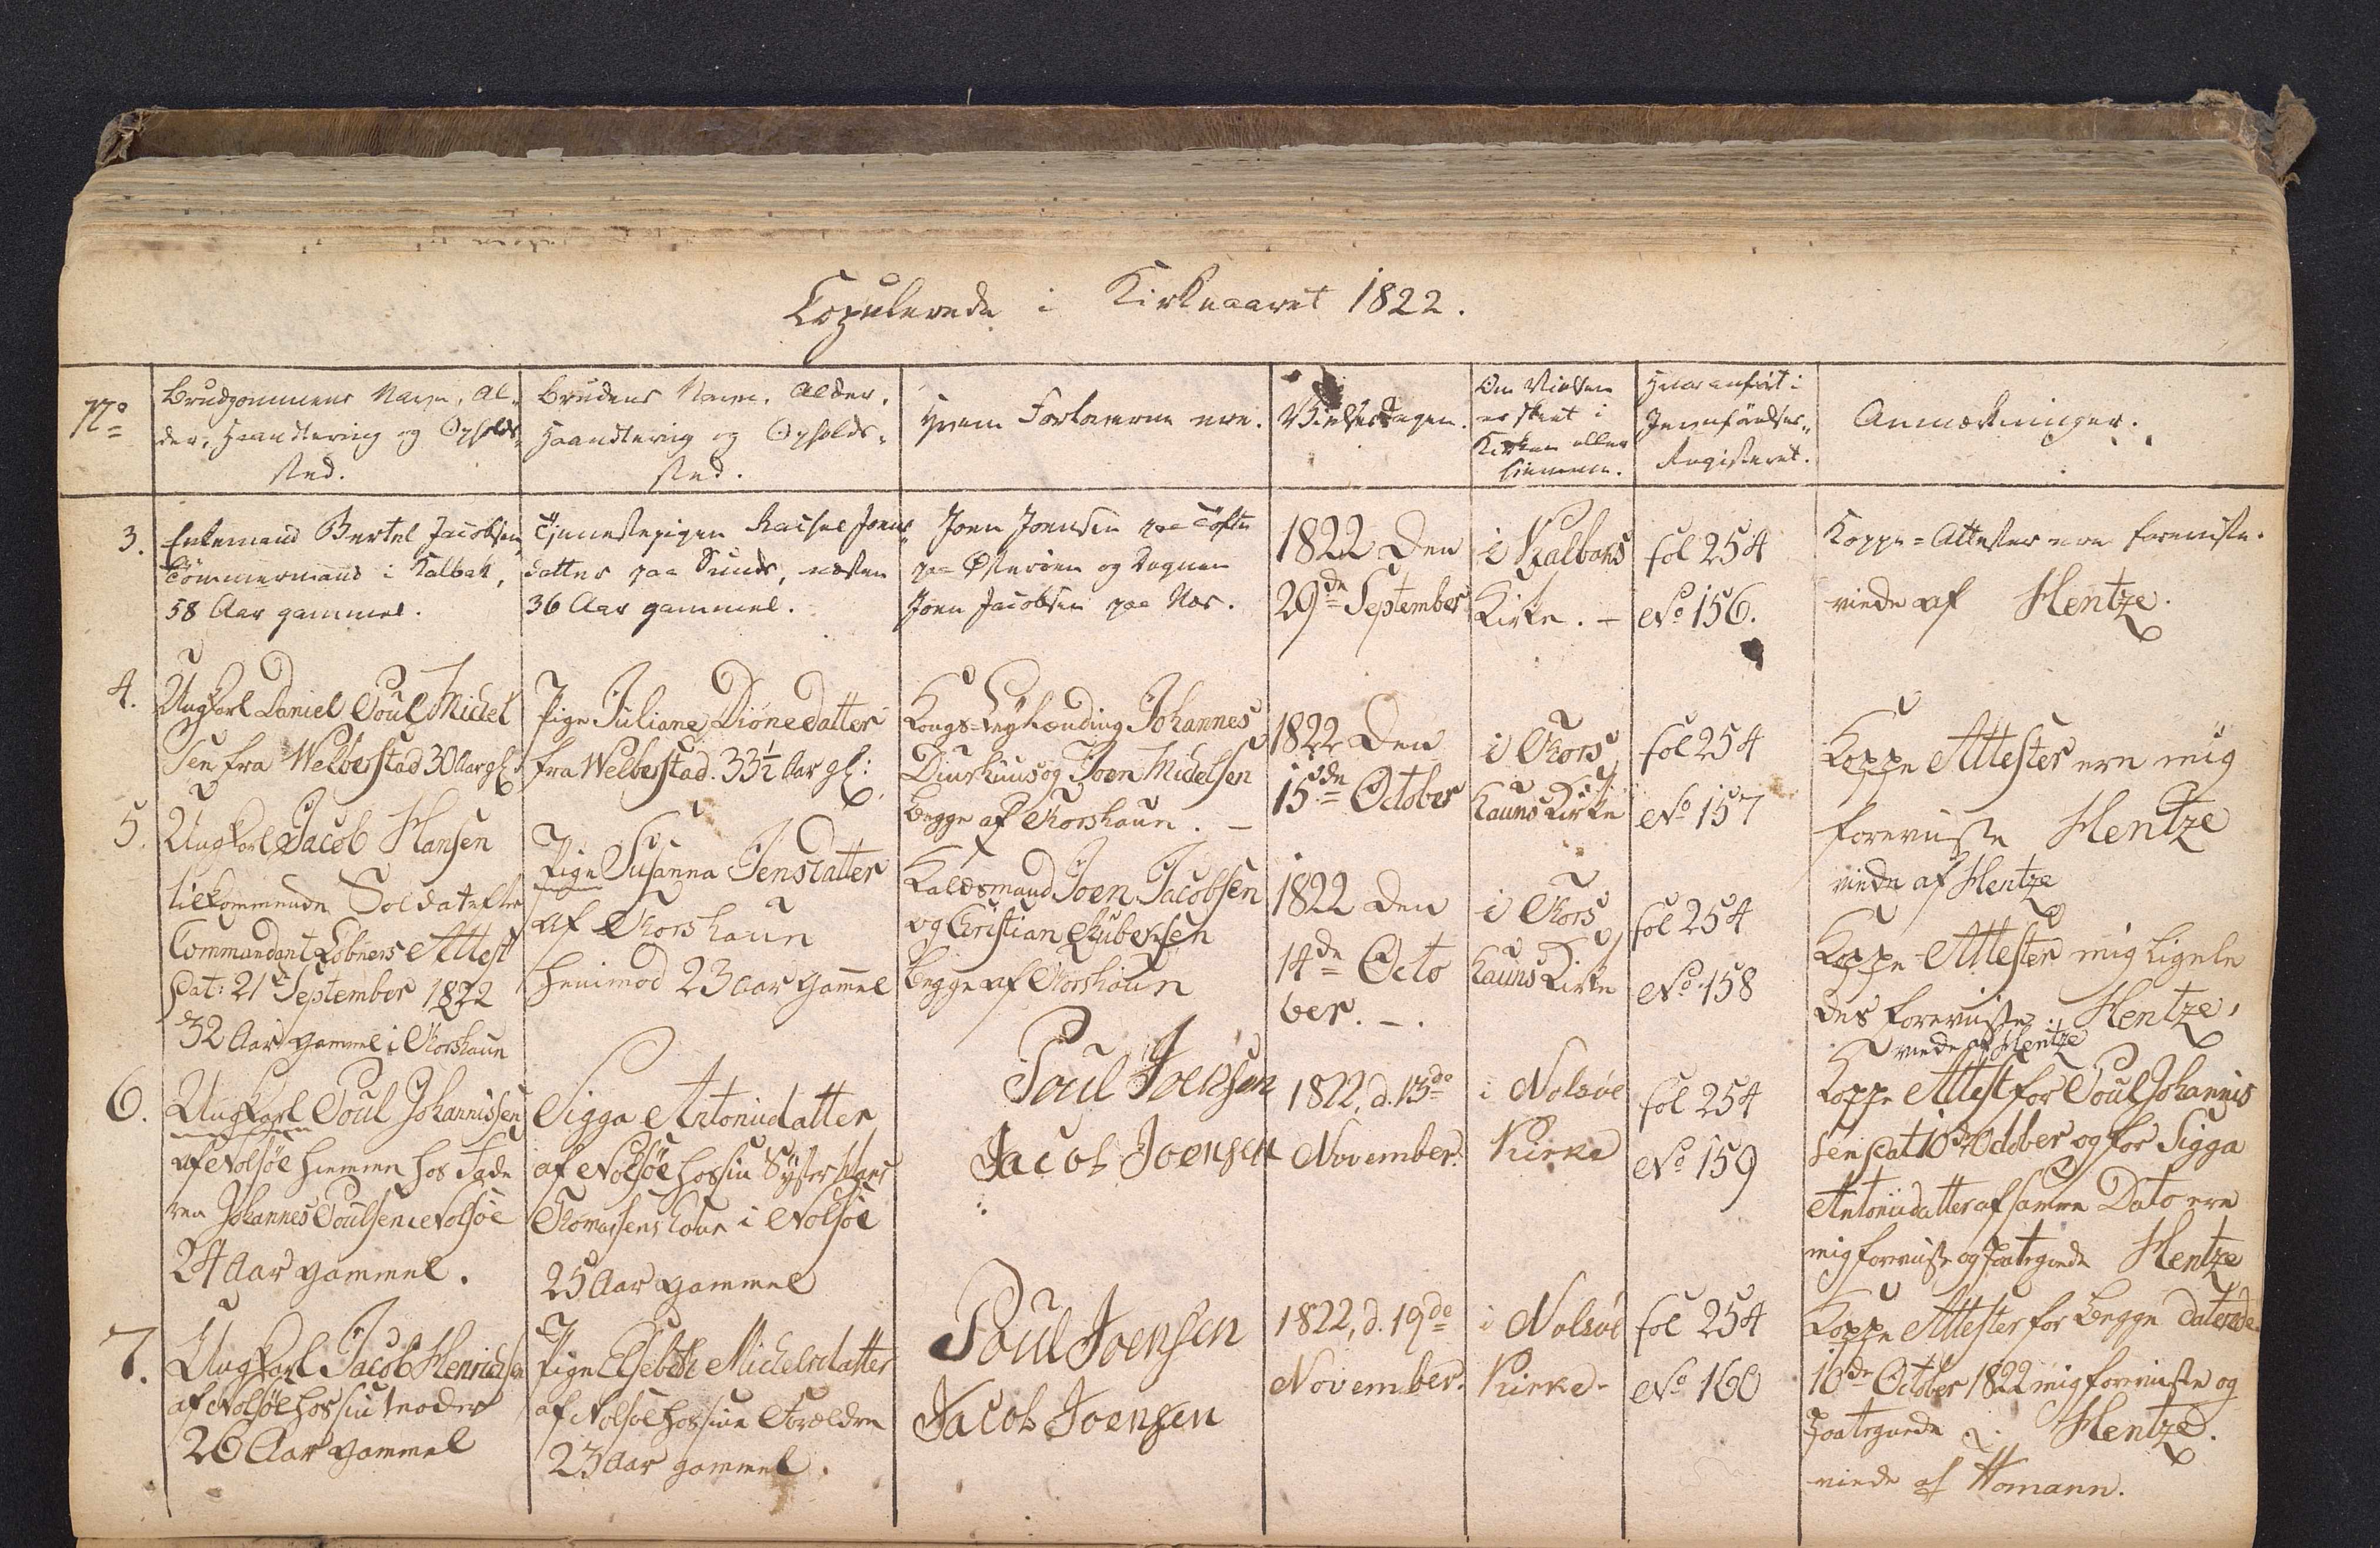 Copulerede i Kirkeaaret 1822.
No
Brudgommens Navn, Al-
der, Haandtering og Opholds-
sted.
Brudens Navn, Alder,
Haandtering og Opholds-
sted.
Hvem Forloverne ere.
Vielsesdagen.
Om Vielsen
er skeet i
Kirken eller
hiemme.
Hvor anført i
Jevnførelses-
Registeret.
Anmærkninger.
3.
Enkemand Bertel Jacobsen
Tömmermand i Kalbak,
58 Aar gammel.
Tjenestepigen Rachel Joens-
datter paa Sund, næsten
36 Aar gammel.
Joen Joensen paa Tofte
paa Østeröen og
Joen Jacobsen paa Næs.
1822 Den
29de September
i Kalbaks
Kirke. -
fol 254
No 156.
Koppe-Attester ere foreviste.
viede af Hentze.
4.
Ungkarl Daniel Poul Michel
sen fra Welberstad 30 Aar gl:
Pige Juliane Dionedatter
fra Welberstad. 33½ Aar gl:
Kongs-Leylænding Johannes
Diurhuus og Joen Michelsen
begge af Thorshaun. -
1822 Den
15de October
i Thors
hauns Kirke
fol 254
No 157
Koppe Attester ere mig
foreviiste Hentze
viede af Hentze
5.
Ungkarl Jacob Hansen
tilkommende Soldat efter
Commandant Löbners Attest
Dat: 21 September 1822
32 Aar gammel i Thorshaun
Pige Susanna Jensdatter
af Thorshaun
henimod 23 aar gamel
Kaldsmand Joen Jacobsen
og Christian Rubeksen
begge af Thorshaun
1822 Den
14de Octo
ber. -.
i Thors
hauns Kirke
fol 254
No 158
Koppe-Attester mig ligele
des foreviiste. Hentze.
viede af Hentze
6.
Ungkarl Poul Johannissen
af Nolsöe hiemme hos Fade
ren Johannes Poulsen i Nolsöe
24 Aar gammel.
Sigga Antoniidatter
af Nolsöe hos sin Syster Hans
Thomassens Kone i Nolsöe
25 Aar gammel
Poul Joensen
Jacob Joensen
1822, d. 13de
November.
i Nolsöe
Kirke
fol 254
No 159
Koppe Attest for Poul Johannis
sen Dat 10de October og for Sigga
Antoniidatter af samme Dato ere
mig foreviiste og paategnede Hentze
7.
Ungkarl Jacob Henrichsen
af Nolsöe hos sin moder
26 Aar gammel
Pige Elsebeth Michelsdatter
af Nolsöe hos sine Forældre
23 Aar gammel.
Poul Joensen
Jacob Joensen
1822, d. 19de
November.
i Nolsöe
Kirke.
fol 254
No 160
Koppe Attester for begge daterede
10de October 1822 mig foreviiste og
paategnede Hentze.
viede af Homann.